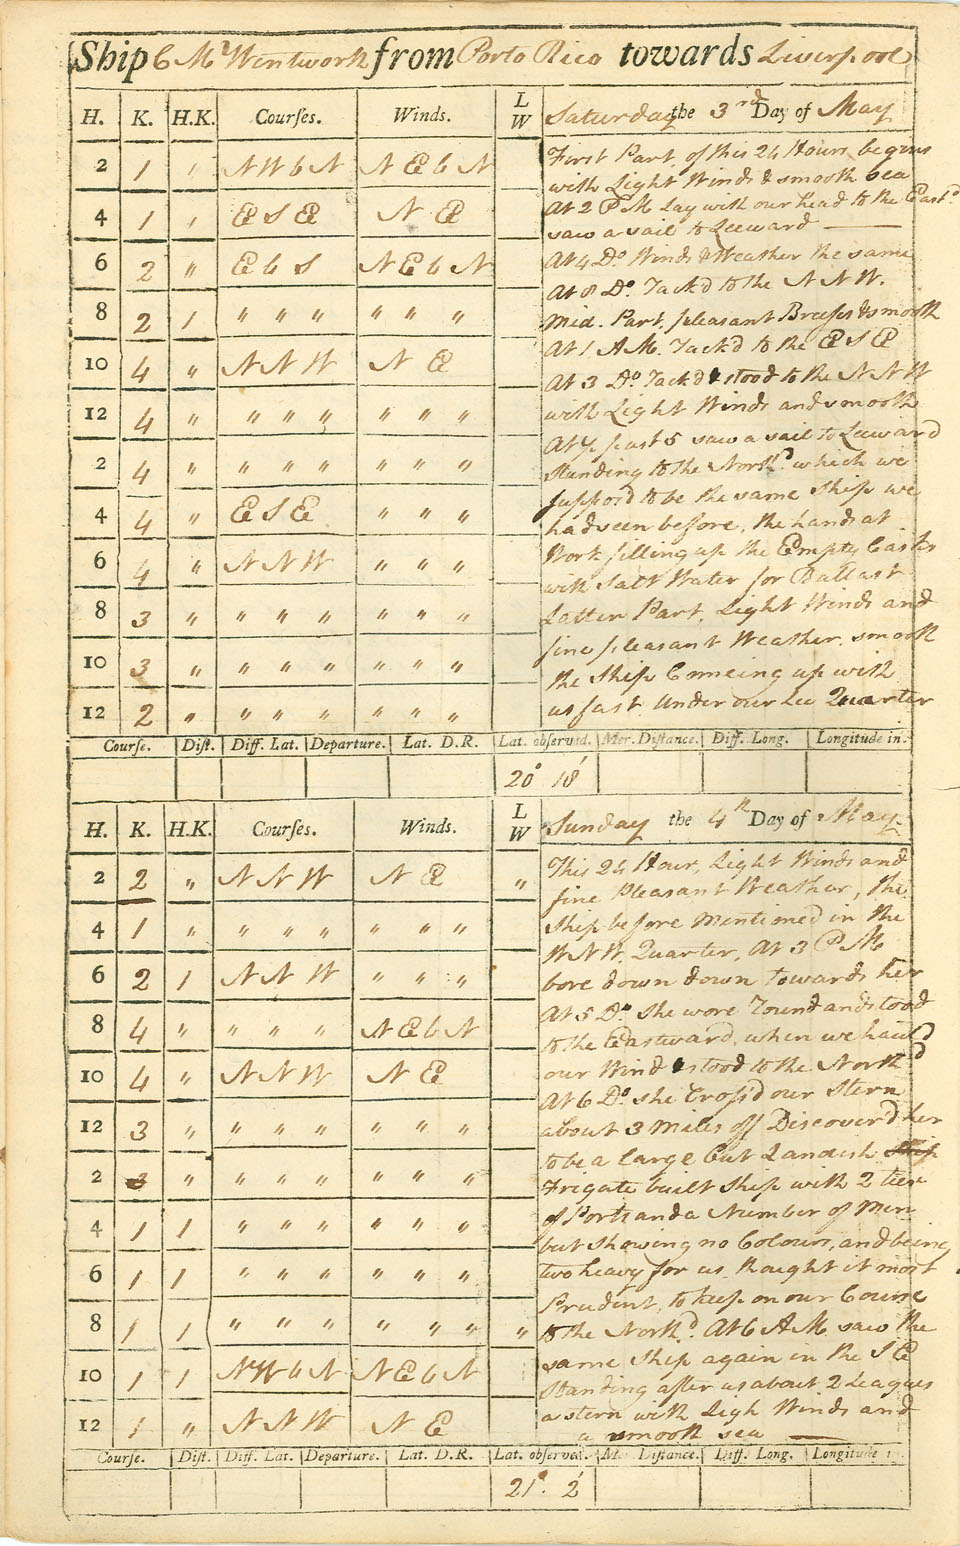 Ship C Mr Wentwork from Porto Rico towards Liverpool
H. K. H.K. Courses. Winds. L W Saturday the 3rd Day of May
2 1 " NWbN NEbN
4 1 " ESE NE
6 2 " EbS NEbN
8 2 1 " " " " " "
10 4 " NNW NE
12 4 " " " " " " "
2 4 " " " " " " "
4 4 " ESE " " "
6 4 " NNW " " "
8 3 " " " " " " "
10 3 " " " " " " "
12 2 " " " " " " "
First Part of this 24 Hours begins
with Light Winds & smooth Sea
At 2 P M Lay with our head to the Eastd
saw a sail to Leeward
At 4 Do Winds & Weather the same
At 8 Do. Tackd to the N N W.
Mid. Part, pleasant Breeses & smooth
At 1 A M. Tackd to the E S E
At 3 Do. Tackd & stood to the N N W
with Light Winds and smooth
At ½ past 5 saw a sail to Leeward
standing to the Northd. which we
suppos'd to be the same ship we
had seen before, the hands at
Work filling up the Empty Casks
with Salt Water for Ballast
Latter Part, Light Winds and
fine pleasant Weather. smooth
the ship Comeing up with
us fast. Under our Lee Quarter
Course. Dist. Diff. Lat. Departure. Lat. D.R. Lat. observed. Mer. Distance. Diff. Long. Longitude in.
20° 18'
H. K. H.K. Courses. Winds. L W Sunday the 4th Day of May
2 2 " NNW NE "
4 1 " " " " " " "
6 2 1 NNW " " "
8 4 " " " " NEbN
10 4 " NNW NE
12 3 " " " " " " "
2 3 " " " " " " "
4 1 1 " " " " " "
6 1 1 " " " " " "
8 1 1 " " " " " " "
10 1 1 NWbN NEbN
12 1 " NNW NE
This 24 Hour, Light Winds and
fine Pleasant Weather, the
ship before mentioned in the
WNW. Quarter, At 3 P M
bore down down towards her
At 5 Do. she wore round and stood
to the Eastward, when we haul'd
our Wind & stood to the Northd
At 6 Do. she Cross'd our Stern
about 3 Miles off Discover'd her
to be a large Out Landish Ship
Frigate built ship with 2 tier
of Ports and a Number of Men
but showing no Colours, and being
two heavy for us thought it most
Prudent, to keep on our Course
to the Northd. At 6 A M. saw the
same ship again in the S E
standing after us about 2 Leagues
astern with Ligh Winds and
a smooth sea
Course. Dist. Diff. Lat. Departure. Lat. D.R. Lat. observed. Mer. Distance. Diff. Long. Longitude in.
21° 2'